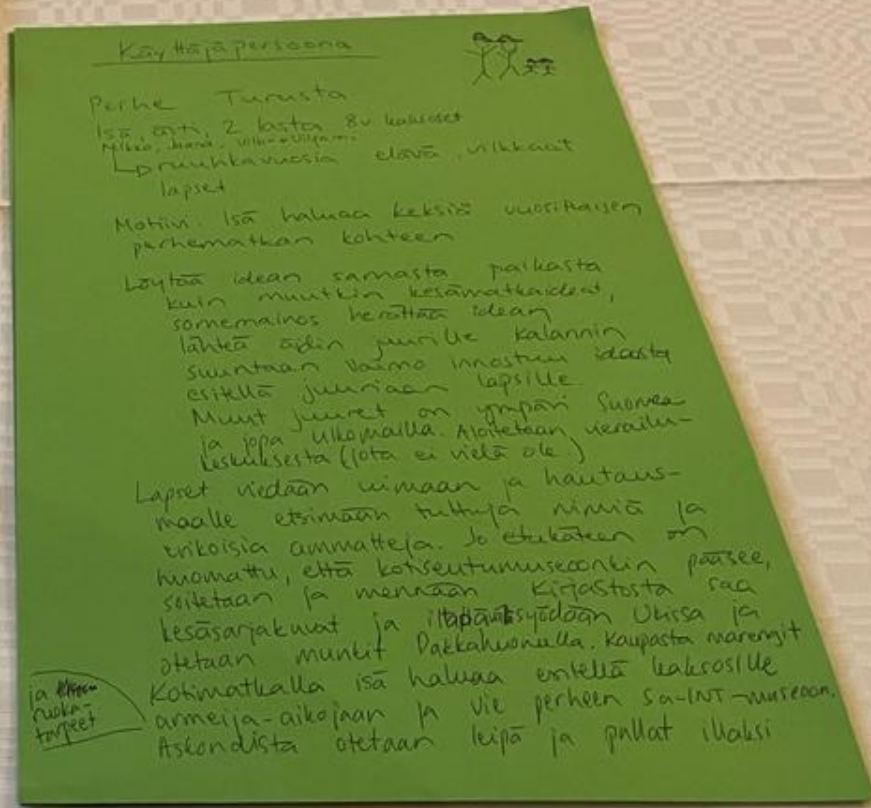 Käyttäjäpersoona
Perhe Turusta
Isä, äiti, 2 lasta 8v kaksoset
Mikko, Jaana, Vilho + Viljami
↳ ruuhkavuosia elävä, vilkkaat
lapset
Motiivi: Isä haluaa keksiä vuosittaisen
perhematkan kohteen
Löytää idean samasta paikasta
kuin muutkin kesämatkaideat,
somemainos herättää idean
lähteä äidin juurille Kalannin
suuntaan Vaimo innostuu ideasta
esitellä juuriaan lapsille.
Muut juuret on ympäri Suomea
ja jopa ulkomailla. Aloitetaan vierailu-
keskuksesta (jota ei vielä ole.)
Lapset viedään uimaan ja hautaus-
maalle etsimään tuttuja nimiä ja
erikoisia ammatteja. Jo etukäteen on
huomattu, että kotiseutumuseoonkin pääsee,
soitetaan ja mennään Kirjastosta saa
kesäsarjakuvat ja syödään Ukissa ja
otetaan munkit Pakkahuoneella. Kaupasta marengit
ja
ruoka-
tarpeet
Kotimatkalla isä haluaa esitellä kaksosille
armeija-aikojaan ja vie perheen Sa-INT-museoon.
Askondista otetaan leipä ja pullat illaksi